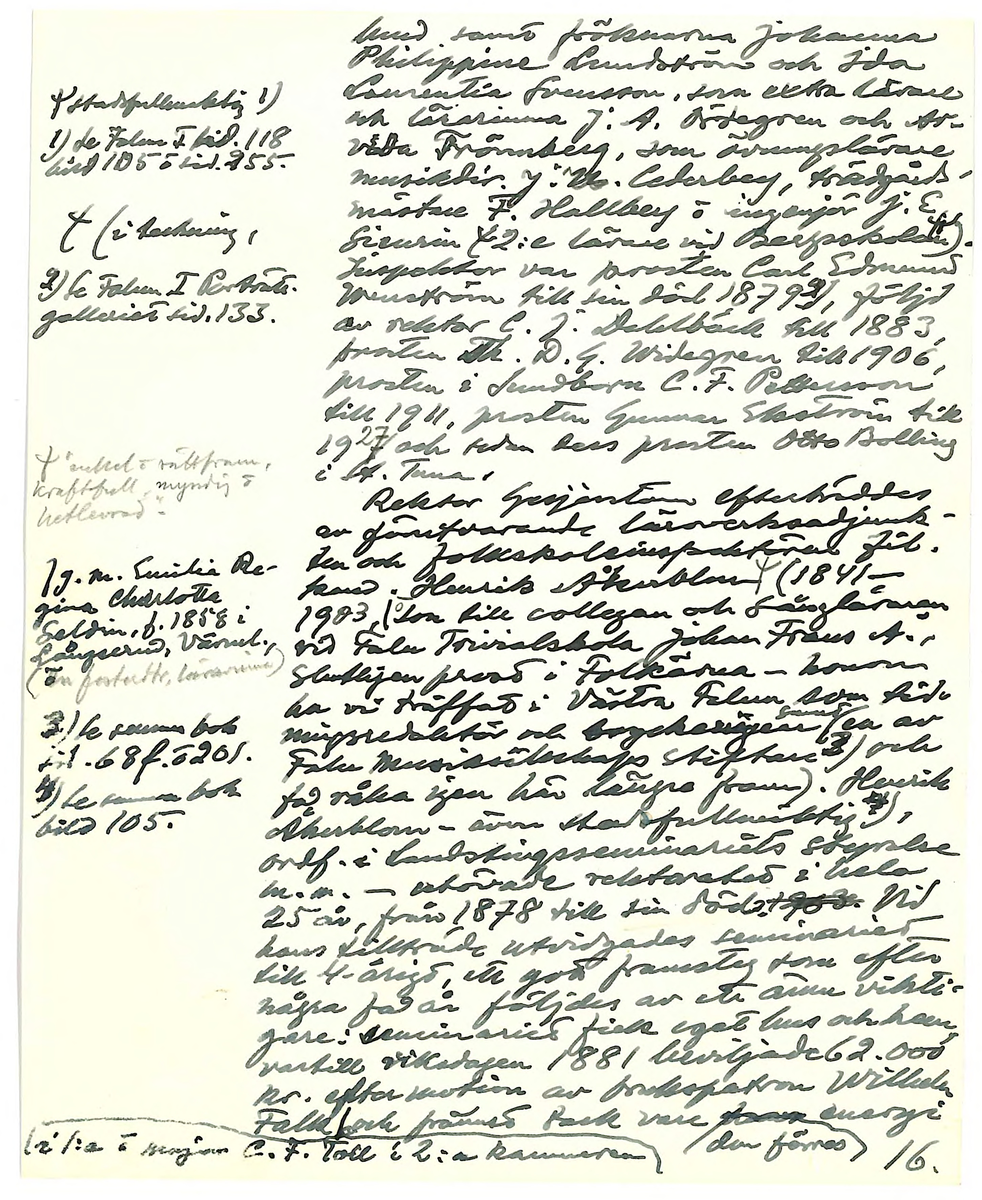 lund samt fröknarna Johanna
Philippine Lundström och Ida
Laurentia Svensson, som extra lärare
och lärarinna J. A. Ördegren och Ar-
vida Frömberg, som övningslärare
musikdir. J. Cederberg, trädgårds-
mästare F. Hallberg o ingenjör J. E.
2:e lärare vid Bergsskolan).
Inspektor var prosten Carl Edmund
Wenström till sin död 1879 2), följd
av rektor C. J. Dahlbäck till 1883,
prosten Th. D. G. Widegren till 1906,
prosten i Sundborn C. F. Pettersson
till 1911, prosten Gunnar Ekström till
1927 och sedan dess prosten Otto Bolling
i St. Tuna.
Rektor efterträddes
av förutvarande läroverksadjunk-
ten och folkskoleinspektören fil.
kand. Henrik Åkerblom (1841–
1903, (son till collegan och sångläraren
vid Falu Trivialskola Johan Frans Å.,
slutligen prost i Folkärna – honom
ha vi träffat i Västra Falun som tid-
ningsredaktör och samt en av
Falu Musiksällskaps stiftare 3) och
få råka igen här längre fram). Henrik
Åkerblom – även stadsfullmäktig 4),
ordf. i Landstingsseminariets styrelse
m.m. – utövade rektoratet i hela
25 år, från 1878 till sin död 1903. Vid
hans tillträde utvidgades seminariet
till 4-årigt, ett gott framsteg som efter
några få år följdes av ett ännu vikti-
gare: seminariet fick eget hus och hem,
vartill riksdagen 1881 beviljade 62.000
kr. efter motion av brukspatron Wilhelm
Falk och främst tack vare hans energi
(i 1:a o majoren C. F. Toll i 2:a kammaren) (den förres)
16.
stadsfullmäktig 1)
1) Se Falun I bild. 118
bild 105 o sid. 355.
(i teckning,
2) Se Falun I Porträtt-
galleriet sid. 133.
"enkel o rättfram,
kraftfull, myndig o
hetlevrad"
) g. m. Emilia Re-
gina Charlotta
Geldin, f. 1858 i
Långserud, Värml.,
(En fosterdtr, lärarinna)
3) Se samma bok
sid. 68f. o 201.
4) Se samma bok
bild 105.